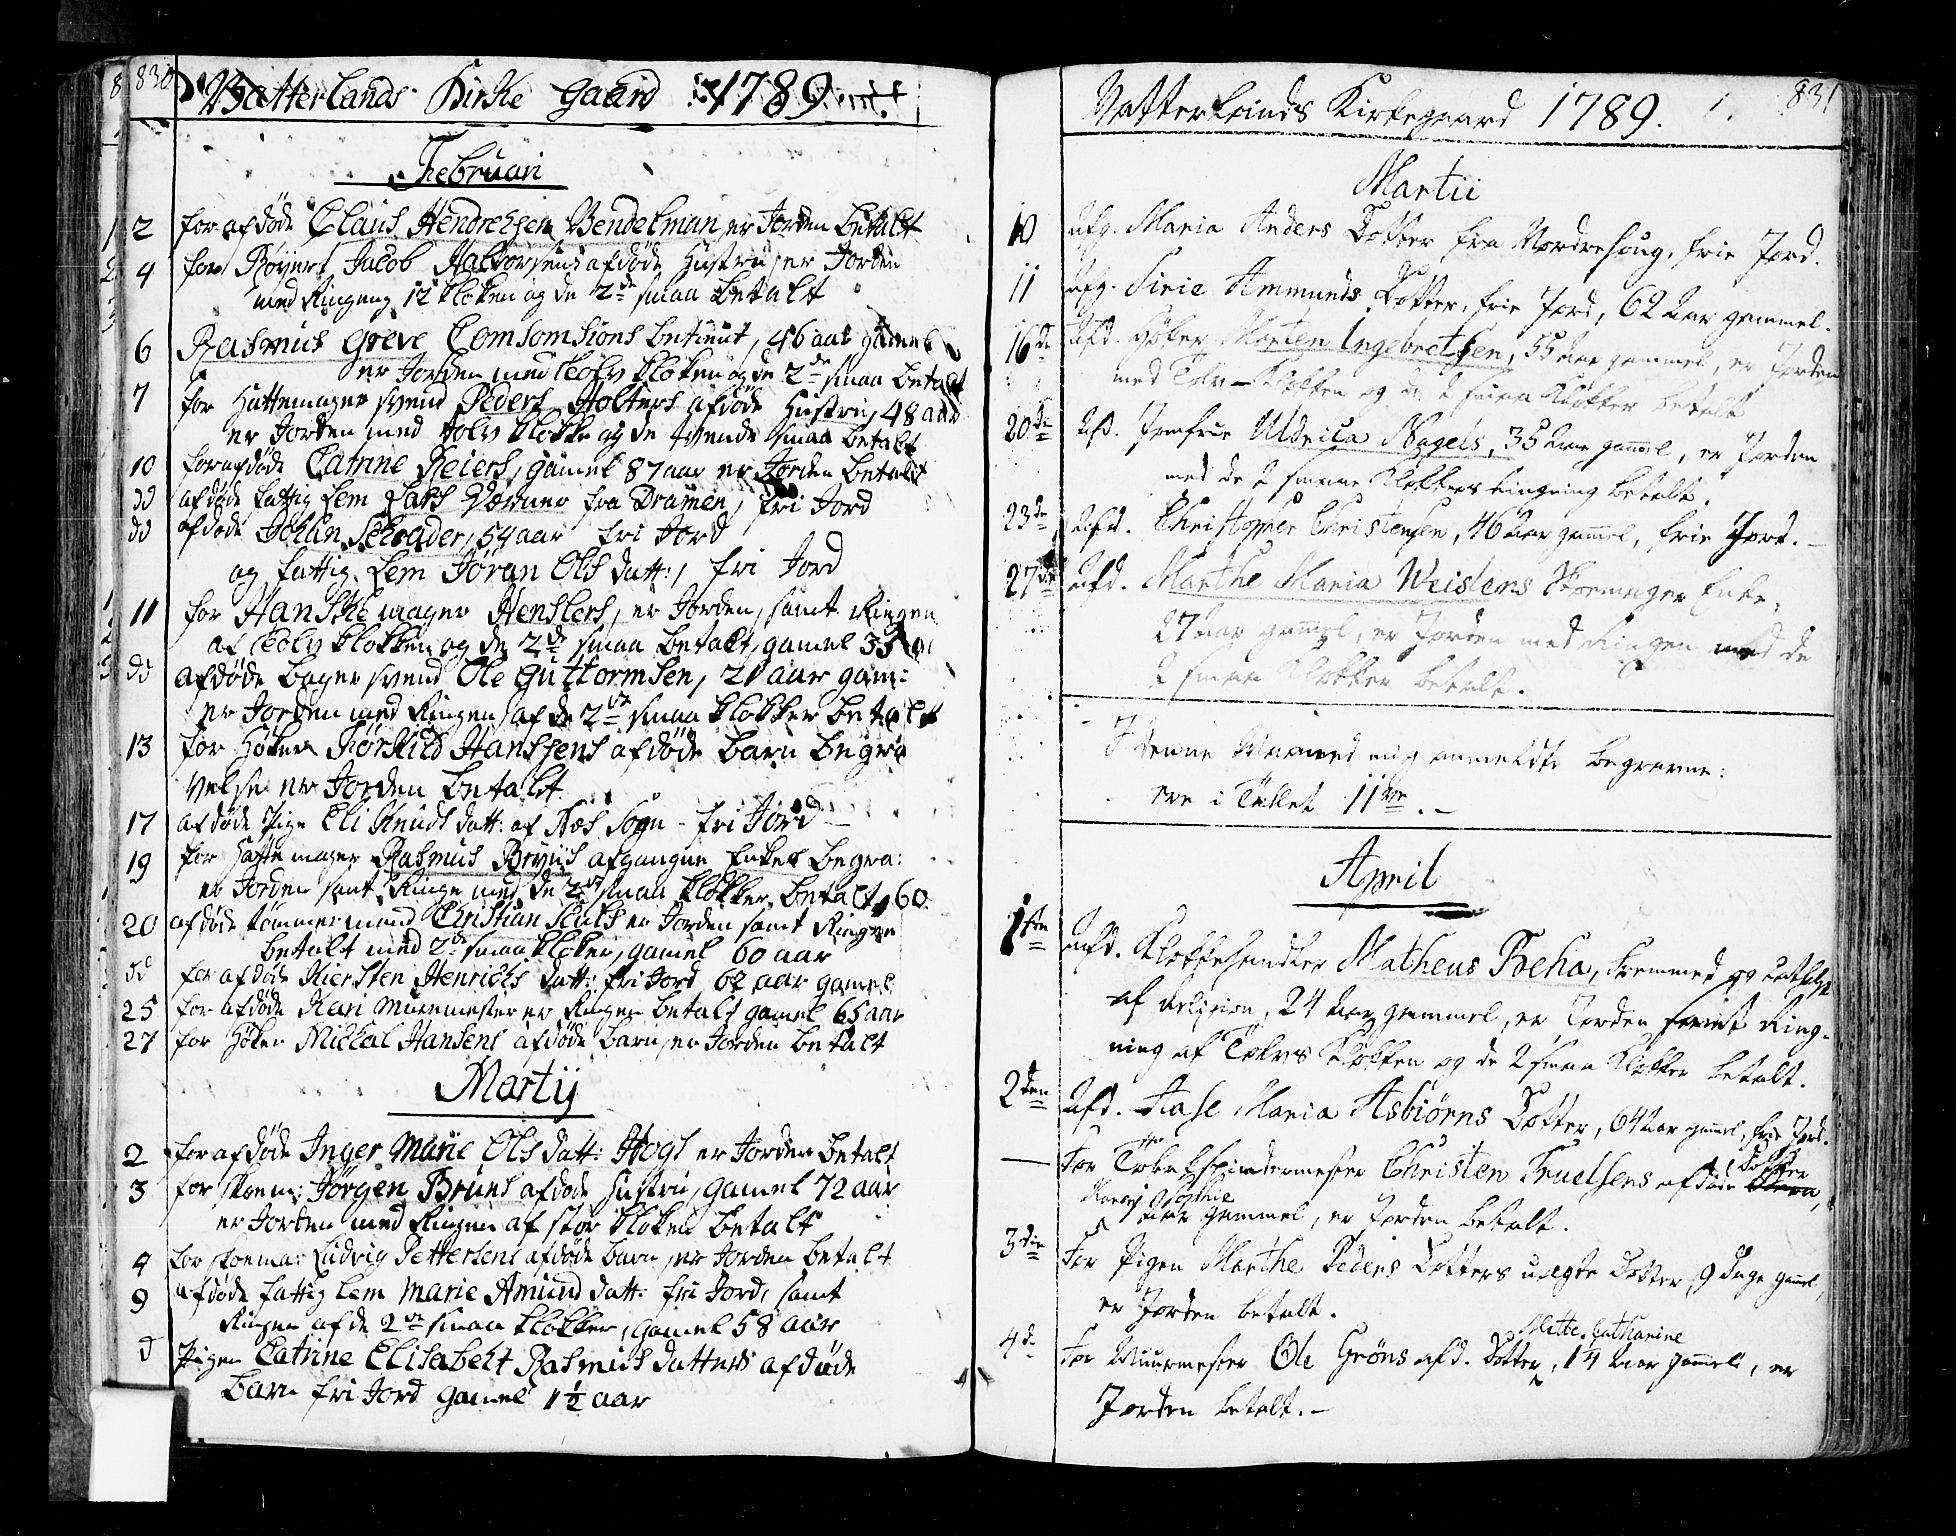 830
Vatterlands Kirke Gaard 1789
Februari
2 for afdøde Claus Hendrechsen Bendelman, er Jorden betalt
4 for Røyert Jacob Halvorsens afdøde Hustru, er Jorden
med Ringeng 12 kloken og de 2de smaa betalt
6 Rasmus Greve Comsomsions betient, 46 aar gamel
er Jorden med tolv kloken og de 2de smaa betalt
7 for Hattemager svend Peders Holters afdøde Hustru, 48 aar
er Jorden med tolv klokke og de tvende smaa betalt
10 for afdøde Catrine Reiers, gamel 87 aar er Jorden betalt
dd afdøde fattig Lem Lars fra Dramen, fri Jord
dd afdøde Johan Schrader, 54 aar fri Jord
og fattig Lem Jøran Ols datt:, fri Jord
11 for Hanske mager Henslers, er Jorden, samt Ringen
af tolv klokken og de 2de smaa betalt, gamel 33
dd afdøde bager svend Ole Guttormsen, 21 aar gam:
er Jorden med Ringen af de 2de smaa klokker betalt
13 for Høker Torkild Hanssens afdøde barn begra
velse er Jorden betalt
17 afdøde Pige Eli Knuds datt: af Næs Sogn - fri Jord
19 for Hatte mager Rasmus Bryns afgangne Enkes begra:
er Jorden samt Ringe med de 2de smaa klokker betalt, 60
20 afdøde tømmermand Christian er Jorden samt Ringen
betalt med 2de smaa kloker, gamel 60 aar
dd for afdøde Kiersten Henrichs datt: fri Jord 62 aar gamel
25 for afdøde Kari Muurmester er Ringen betalt gamel 65 aar
27 for Høker Michal Hansens afdøde barn, er Jorden betalt
Martij
2 for afdøde Inger Marie Ols datt: Hogs er Jorden betalt
3 for skoem: Jørgen Bruns afdøde Hustru, gamel 72 aar
er Jorden med Ringen af stor kloken betalt
4 for skoema: Ludvig Pettersens afdøde barn, er Jorden betalt
9 afdøde fattig Lem Marie Amund datt: fri Jord, samt
Ringen af de 2de smaa klokker, gamel 58 aar
d Pigen Catrine Elisabeht Rasmus datters afdøde
barn fri Jord gamel 1½ aar
831
Vatterlands Kirkegaard 1789.
Martii
10 Afg. Maria Anders Dotter fra Nordrehoug, frie Jord.
11 Afg. Sirie Ammunds Dotter, frie Jord, 62 Aar gammel.
16de Afd. Høker Morten Ingebretsen, 55 Aar gammel, er Jorden
med Tolv-Klokken og de 2 smaa Klokker betalt
20de Afd. Jomfrue Uldrica Nagels, 35 Aar gaml, er Jorden
med de 2 smaae Klokkers ringning betalt.
23de Afd. Christopher Christensen, 46 Aar gaml, frie Jord.
27de Afd. Marthe Maria Weislens Skomager Enke,
27 Aar gammel, er Jorden med Ringen med de
2 smaae Klokker betalt.
I denne Maaned mig anmeldte begravne:
ere i Tallet 11ve.
April
1ste Afd. Klokkehandler Matheus Foeha, fremmed og catholsk
af Religion, 24 Aar gammel, er Jorden samt Ring-
ning af Tolv Klokken og de 2 smaa Klokker betalt.
2den Afd. Aase Maria Asbiørns Dotter, 64 Aar gaml, frie Jord.
— For Tobakspindermester Christen Truelsens afdøde Dotter
Sophie
5 Aar gammel, er Jorden betalt.
3die For Pigen Marthe Peders Dotters uægte Dotter, 9 Dage gaml,
er Jorden betalt.
Mette Catharine
4de For Muurmester Ole Grøns afd. Dotter, 14 Aar gammel, er
Jorden betalt.